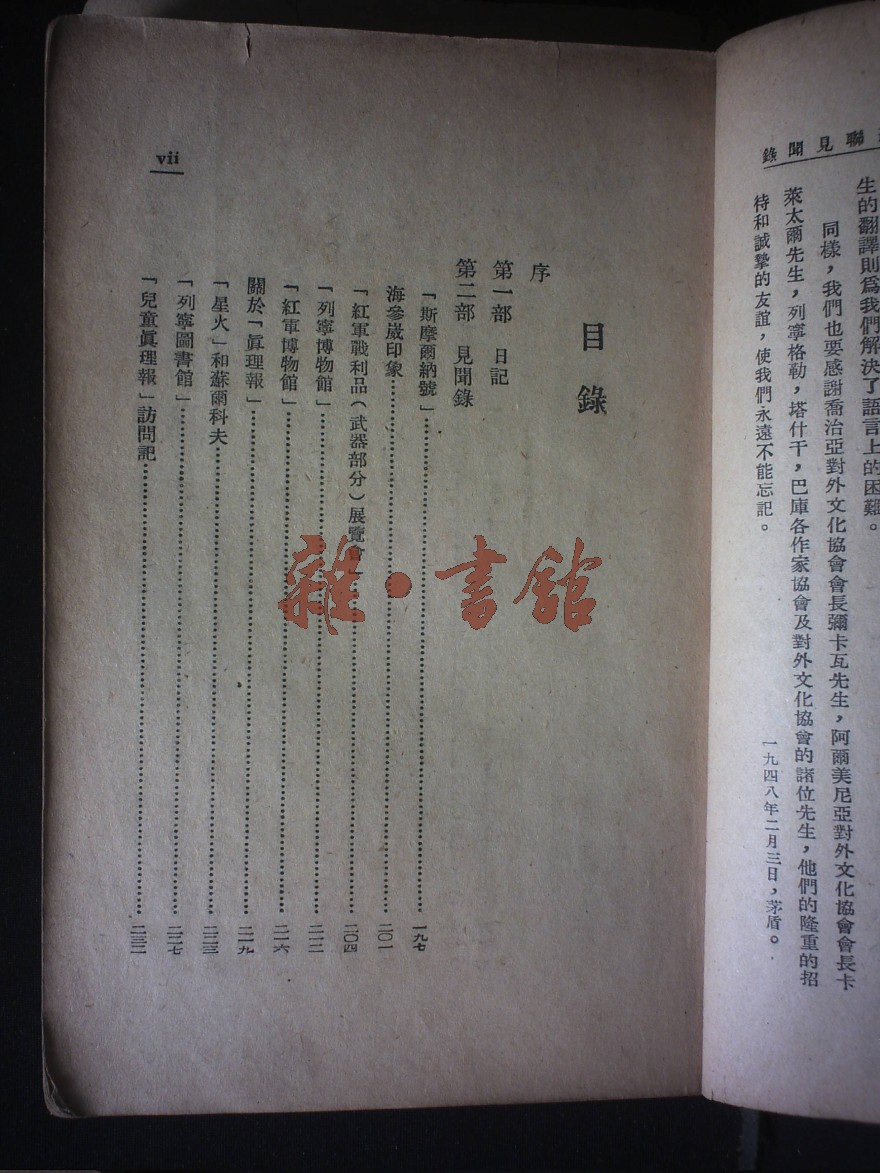 聯見聞錄
生的翻譯則爲我們解決了語言上的困難。
同樣，我們也要感謝喬治亞對外文化協會會長彌卡瓦先生，阿爾美尼亞對外文化協會會長卡
萊太爾先生，列寧格勒，塔什干，巴庫各作家協會及對外文化協會的諸位先生，他們的隆重的招
待和誠摯的友誼，使我們永遠不能忘記。
一九四八年二月三日，茅盾。
目錄
序
第一部 日記
第二部 見聞錄
「斯摩爾納號」……一九七
海參崴印象……二〇一
「紅軍戰利品（武器部分）展覽會」……二〇四
「列寧博物館」……二一二
「紅軍博物館」……二一六
關於「眞理報」……二一九
「星火」和蘇爾科夫……二二三
「列寧圖書館」……二二七
「兒童眞理報」訪問記……二三二
vii
雜·書館